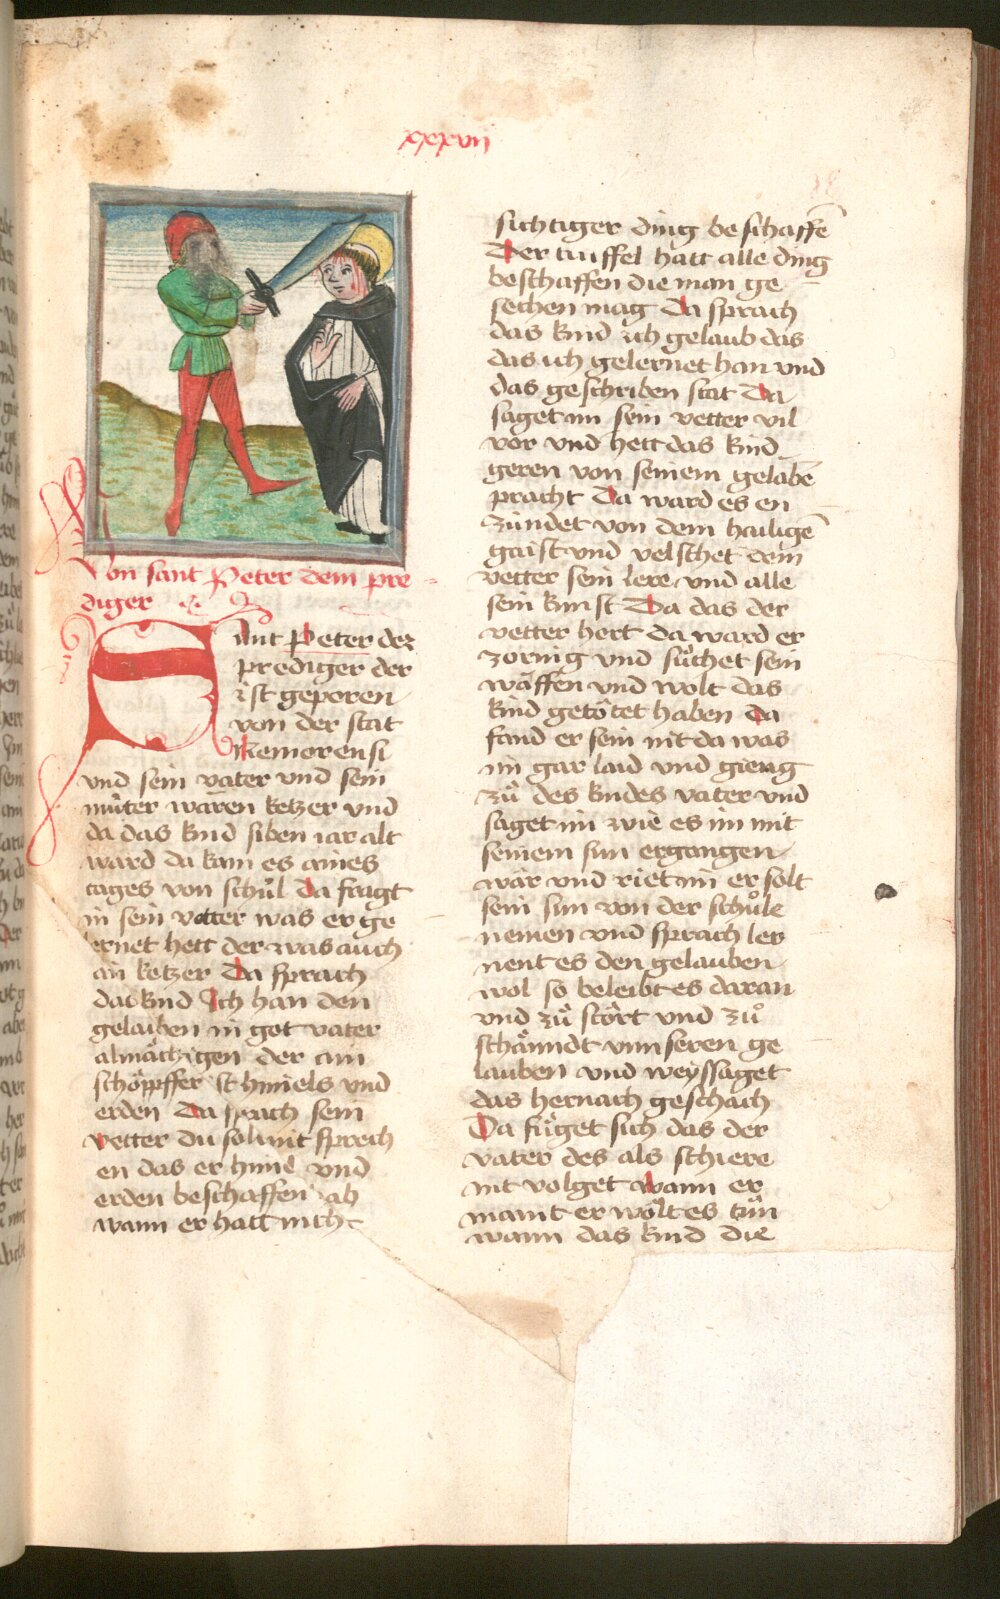 xxxvii
Von sant Peter dem pre
diger
Sant Peter der
prediger der
ist geporen
von der stat
Remorensi
vnd sein vater vnd sein
muͦter waren ketzer vnd
da das kind siben iar alt
ward da kam es aines
tages von schuͦl Da fragt
in sein vetter was er ge
lernet hett der was auch
ain ketzer Da sprach
das kind Ich han den
gelauben in got vater
almächtigen der ain
schöpffer ist himels vnd
erden Da sprach sein
vetter du solt nit sprech
en das er himel vnd
erden beschaffen hab
wann er hatt nicht
sichtiger ding beschaffē
Der tiuffel hatt alle ding
beschaffen die man ge
sechen mag Da sprach
das kind ich gelaub das
das ich gelernet han vnd
das geschriben stat Da
saget im sein vetter vil
vor vnd hett das kind
geren von seinem gelabē
pracht Da ward es en
zündet von dem hailigē
gaist vnd velschet dem
vetter sein lere vnd alle
sein kunst Da das der
vetter hort da ward er
zornig vnd suͦchet sein
wäffen vnd wolt das
kind getötet haben Da
fand er sein nit da was
im gar laid vnd gieng
zuͦ des kindes vater vnd
saget im wie es im mit
seinem sun ergangen
wär vnd riet im er solt
sein sun von der schuͦle
nemen vnd sprach ler
nent es den gelauben
wol so beleibt es daran
vnd zuͦ stört vnd zuͦ
schänndt vnnseren ge
lauben vnd weyssaget
das hernach geschach
Da fuͦget sich das der
vater des als schiere
nit volget wann er
maint er wölt es tuͦn
wann das kind die